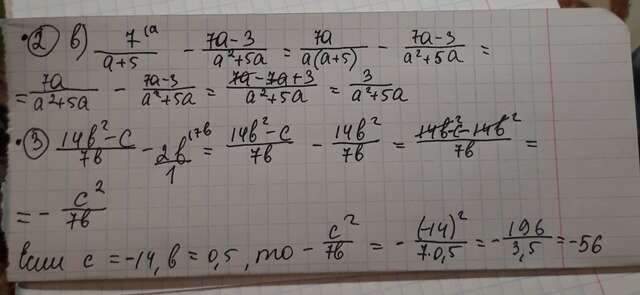 ·② в) 7^{(a}/(a+5) - (7a-3)/(a²+5a) = 7a/(a(a+5)) - (7a-3)/(a²+5a) =
= 7a/(a²+5a) - (7a-3)/(a²+5a) = (7a-7a+3)/(a²+5a) = 3/(a²+5a)
·③ (14b²-c)/7b - 2b^{(7b}/1 = (14b²-c)/7b - 14b²/7b = (14b²-c²-14b²)/7b =
= - c²/7b
Если c = -14, b = 0,5, то - c²/7b = - (-14)²/(7·0,5) = - 196/3,5 = -56